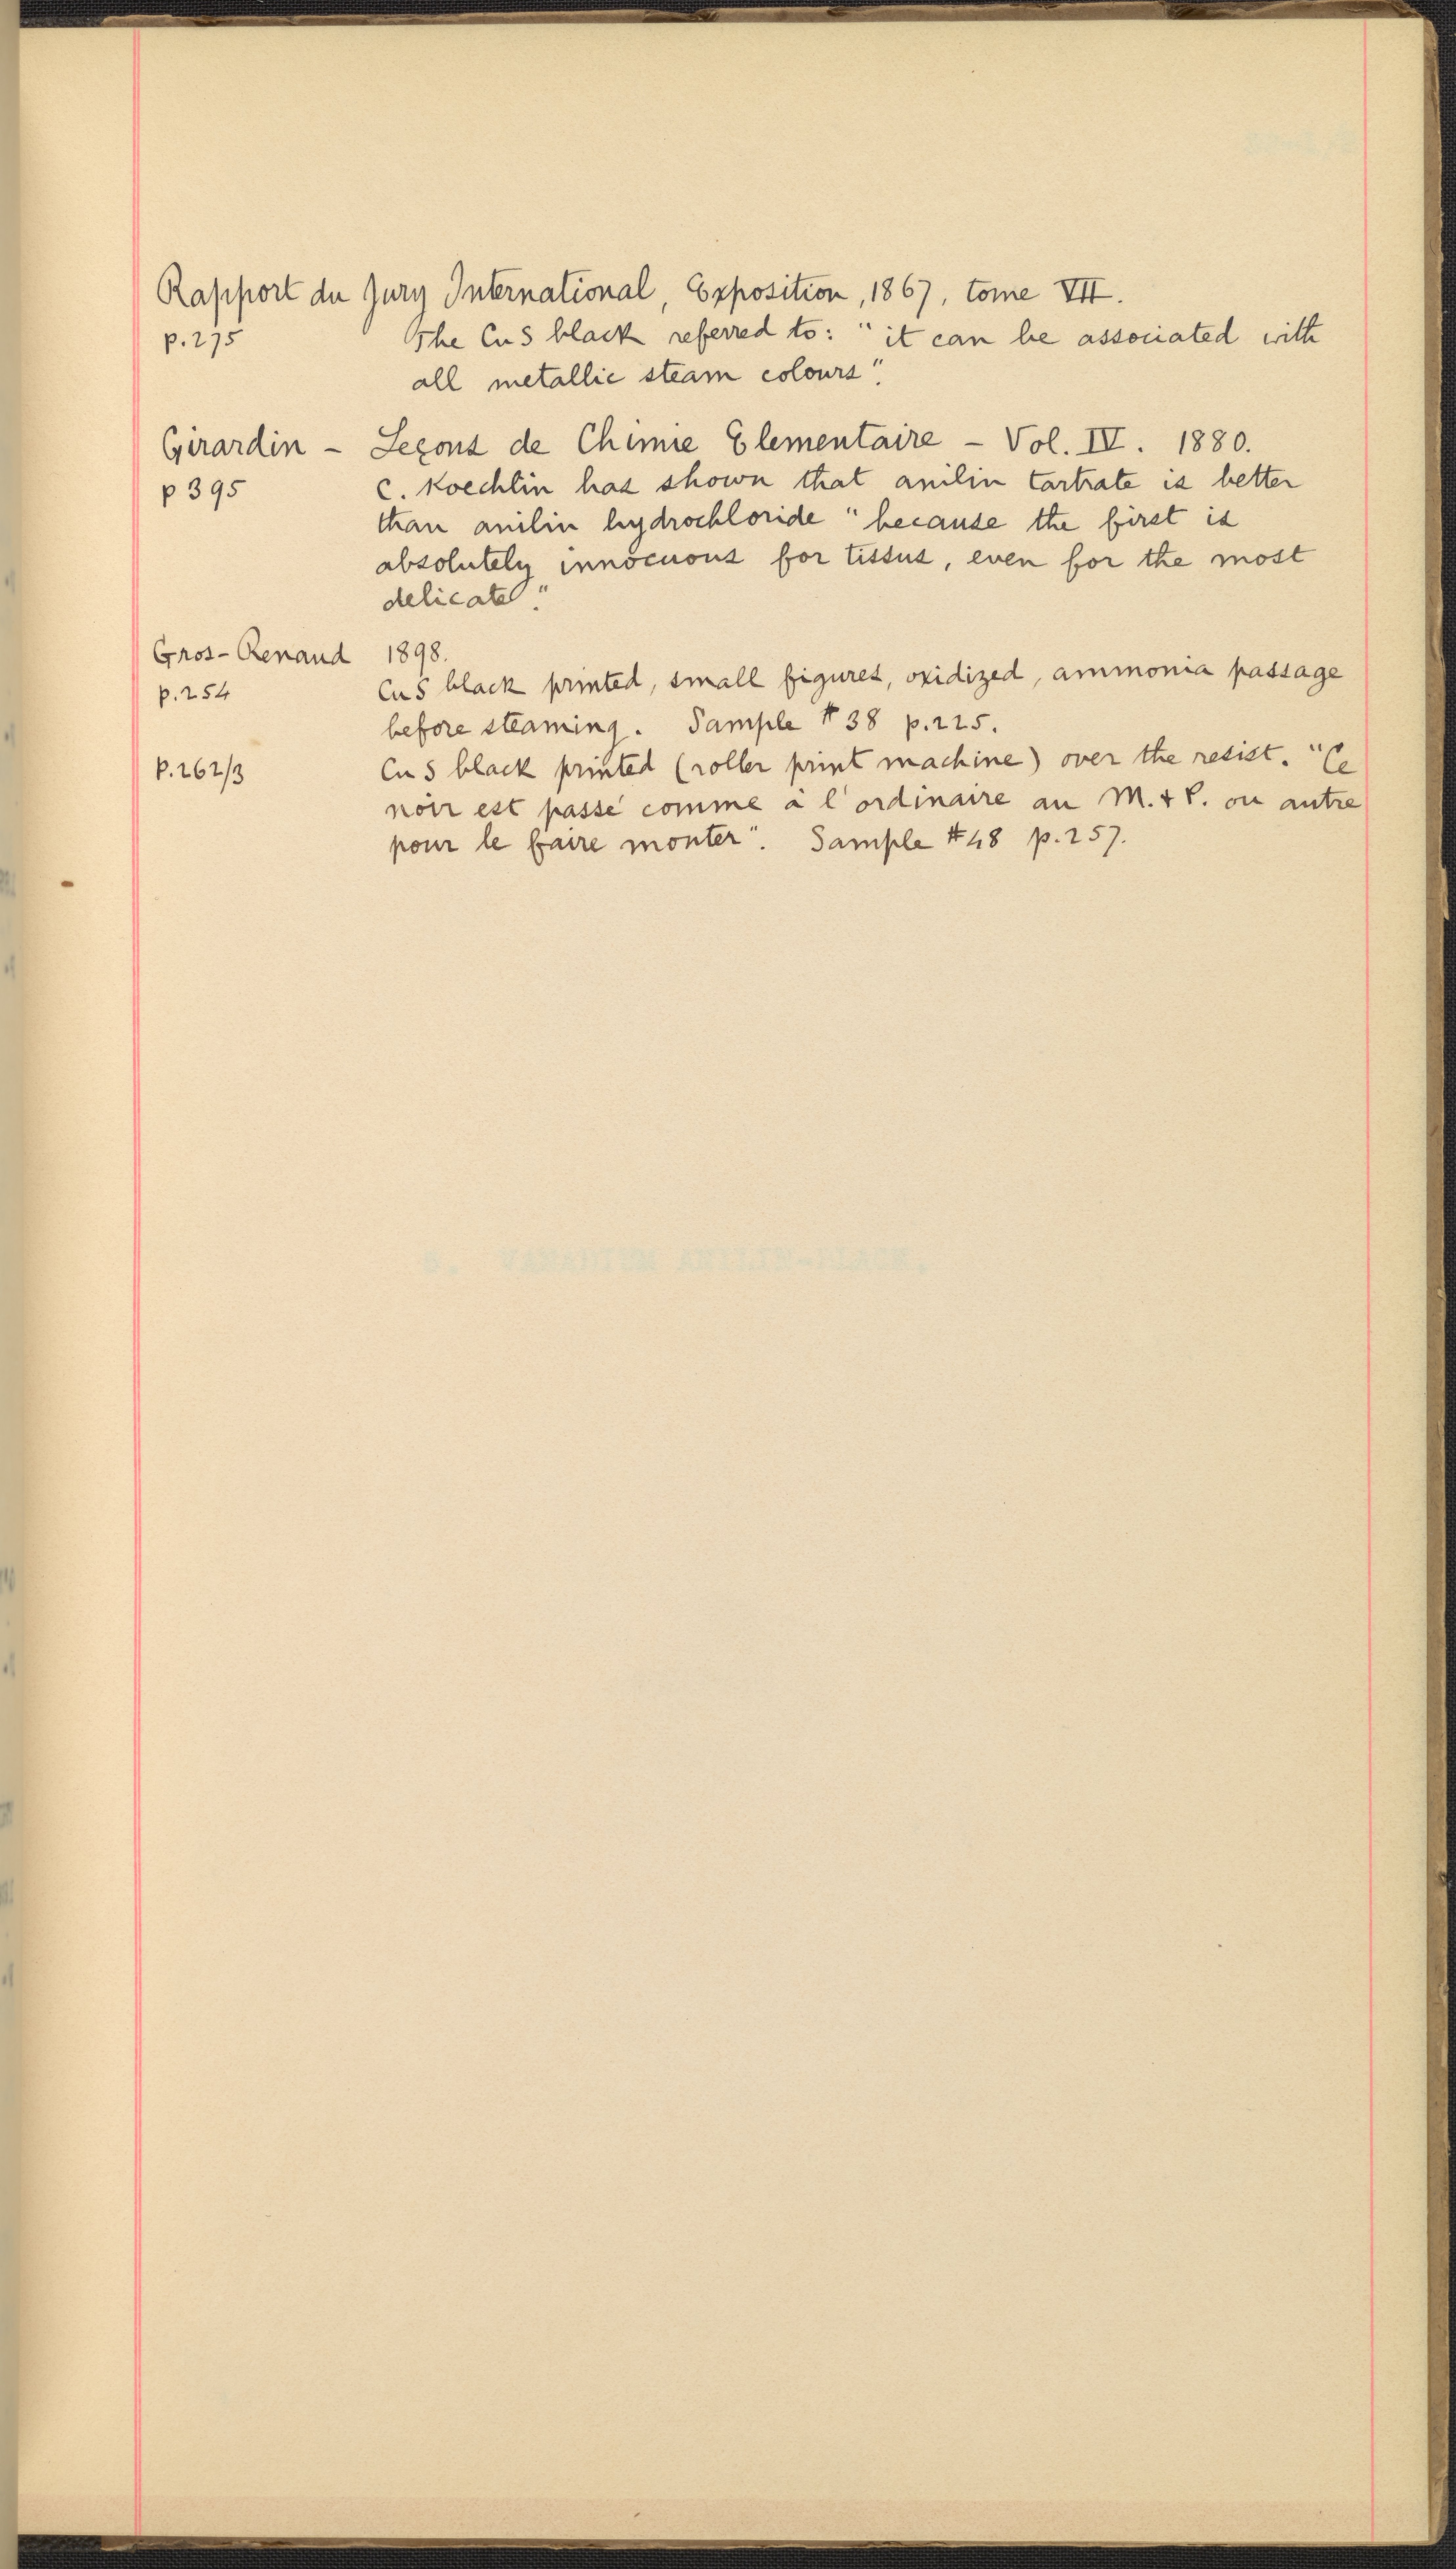 Rapport du Jury International, Exposition, 1867, tome VII.
p. 275 The CuS black referred to: "it can be associated with
all metallic steam colours".
Girardin – Leçons de Chimie Elementaire – Vol. IV. 1880.
p 395 C. Koechlin has shown that anilin tartrate is better
than anilin hydrochloride "because the first is
absolutely innocuous for tissus, even for the most
delicate".
Gros-Renaud 1898.
p. 254 CuS black printed, small figures, oxidized, ammonia passage
before steaming. Sample # 38 p. 225.
p. 262/3 CuS black printed (roller print machine) over the resist. "Ce
noir est passé comme à l'ordinaire au M. & P. ou autre
pour le faire monter". Sample #48 p. 257.